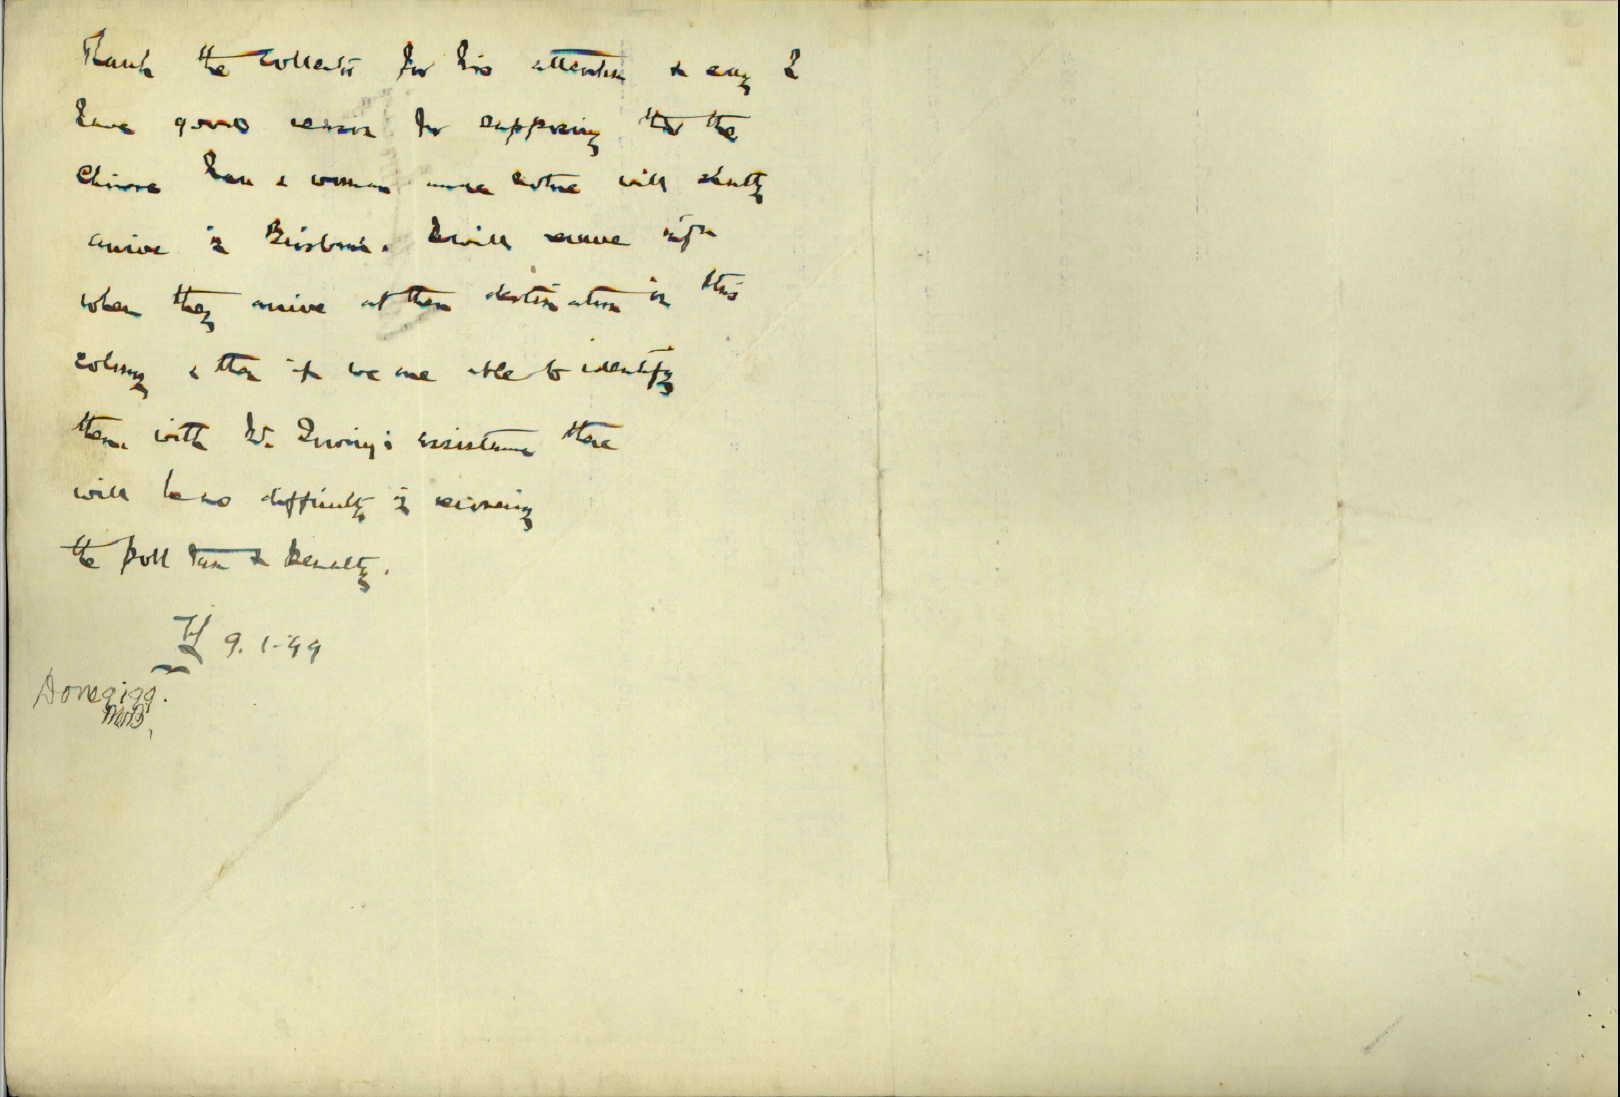 Thank the Collector for his attention & say I
have good reason for supposing that the
Chinese man & woman will shortly
arrive in Brisbane. I will receive infn
when they arrive at their destination in this
colony & then if we are able to identify
them with Mr. Irving's assistance there
will be no difficulty in recovering
the poll tax & penalty.
9.1.99
Done 9/1/99.